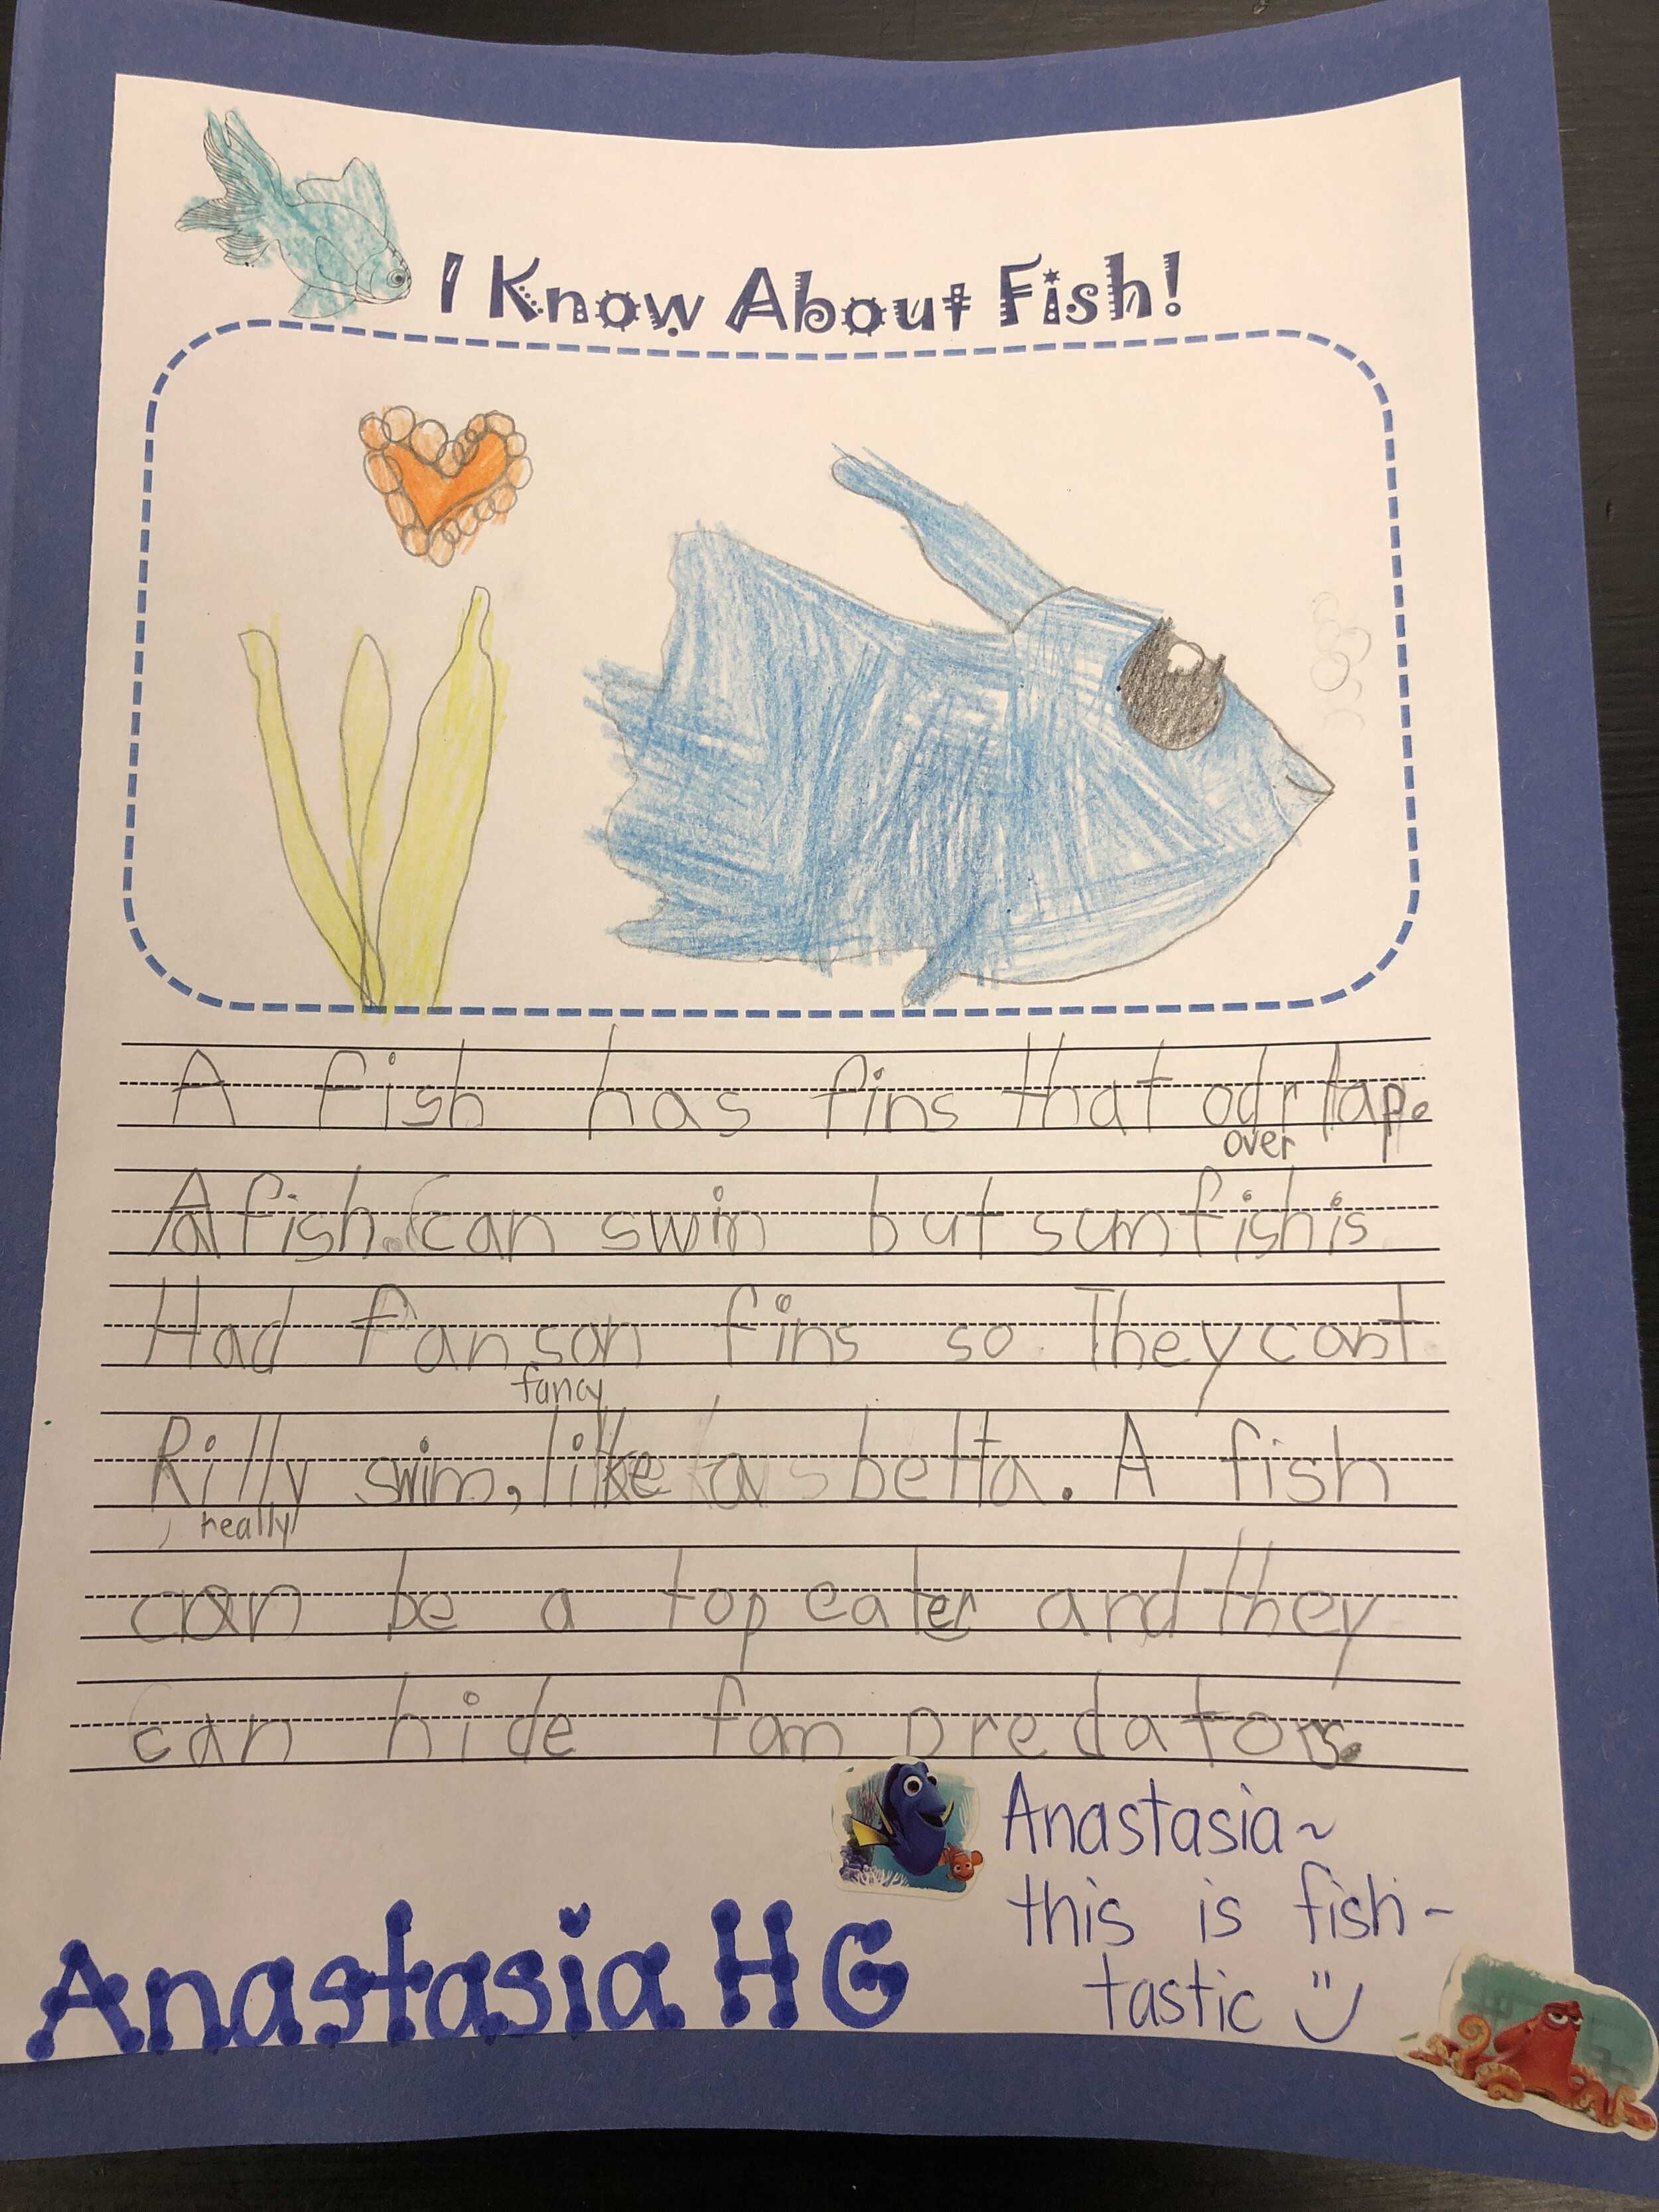 I Know About Fish!
A fish has fins that odr lap.
over
A fish. can swin but sum fish is
Had fan son fins so They cant
fancy
Rilly swim, like a betta. A fish
really
can be a top eater and they
can hide fam predators.
Anastasia~
this is fish-
tastic
Anastasia HG